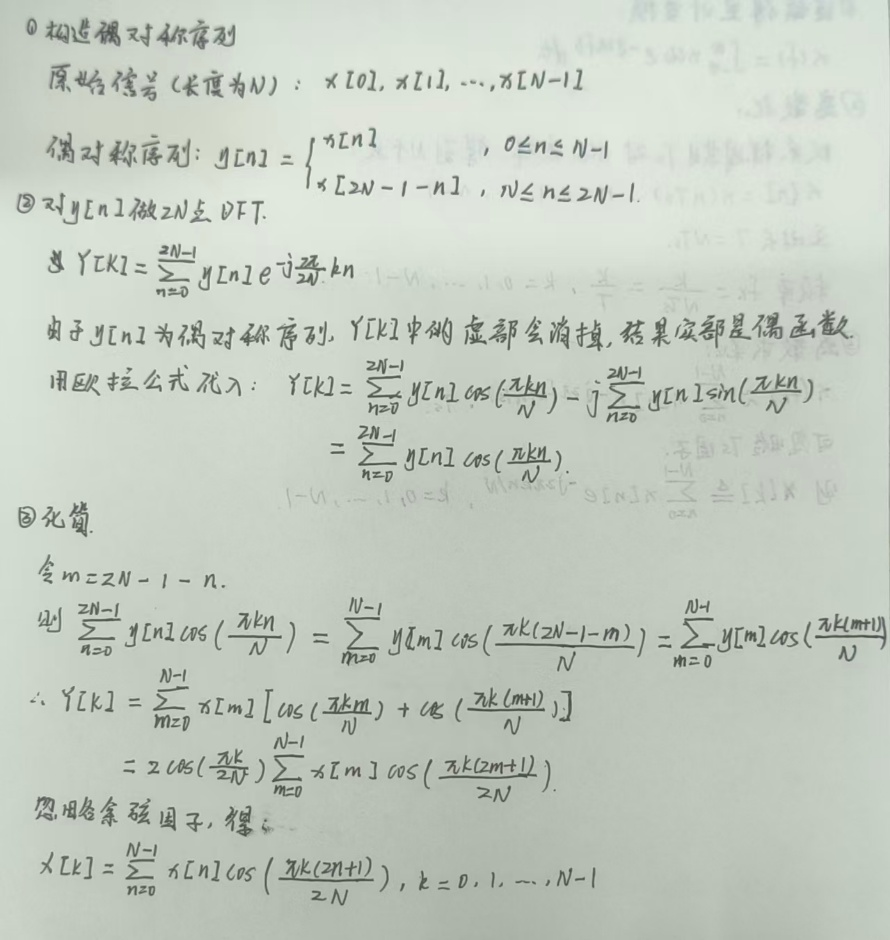 ① 构造偶对称序列
原始信号(长度为N): x[0], x[1], ..., x[N-1]
偶对称序列: y[n] = { x[n] , 0≤n≤N-1
x[2N-1-n] , N≤n≤2N-1.
② 对y[n]做2N点DFT.
Y[k] = Σ_{n=0}^{2N-1} y[n] e^{-j\frac{2π}{2N}kn}
由于y[n]为偶对称序列, Y[k]中的虚部会消掉, 结果实部是偶函数.
用欧拉公式代入: Y[k] = Σ_{n=0}^{2N-1} y[n] cos(\frac{πkn}{N}) - j Σ_{n=0}^{2N-1} y[n] sin(\frac{πkn}{N})
= Σ_{n=0}^{2N-1} y[n] cos(\frac{πkn}{N}).
③ 化简.
令 m=2N-1-n.
则 Σ_{n=0}^{2N-1} y[n] cos(\frac{πkn}{N}) = Σ_{m=0}^{N-1} y[m] cos(\frac{πk(2N-1-m)}{N}) = Σ_{m=0}^{N-1} y[m] cos(\frac{πk(m+1)}{N})
∴ Y[k] = Σ_{m=0}^{N-1} x[m] [cos(\frac{πkm}{N}) + cos(\frac{πk(m+1)}{N})]
= 2 cos(\frac{πk}{2N}) Σ_{m=0}^{N-1} x[m] cos(\frac{πk(2m+1)}{2N}).
忽略余弦因子, 得:
X[k] = Σ_{n=0}^{N-1} x[n] cos(\frac{πk(2n+1)}{2N}), k=0, 1, ..., N-1